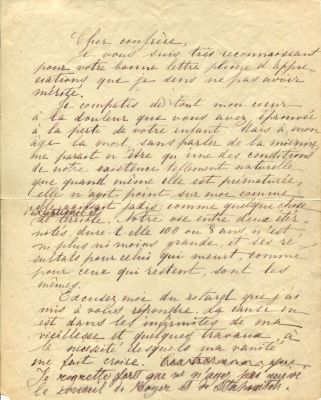 Cher confrère,
Je vous suis très reconnaissant
pour votre bonne lettre pleine d'appré-
ciations que je sens ne pas avoir
mérité.
Je compatis de tout mon coeur
à la douleur que vous avez éprouvée
à la perte de votre enfant. Mais à mon
âge la mort, sans parler de la mienne,
me parait n'être qu'une des conditions
de notre existence tellement naturelle
que quand même elle est prématurée,
elle n'agit point sur moi comme
jadis comme quelque chose
de terrible. Notre vie entre deux éter-
nités, dure-t-elle 100 ou 8 ans, n'est
ni plus ni moins grande, et les ré-
sultats pour celui qui meurt, comme
pour ceux qui restent, sont les
mêmes.
Excusez moi du retard que j'ai
mis à vous répondre. La cause en
est dans les infirmités de ma
vieillesse et quelques travaux, à
la nécessité desquels ma vanité
me fait croire.
Je regrette fort que vs n'ayez pas suivi
le conseil de Boyer et de Stakovitch.